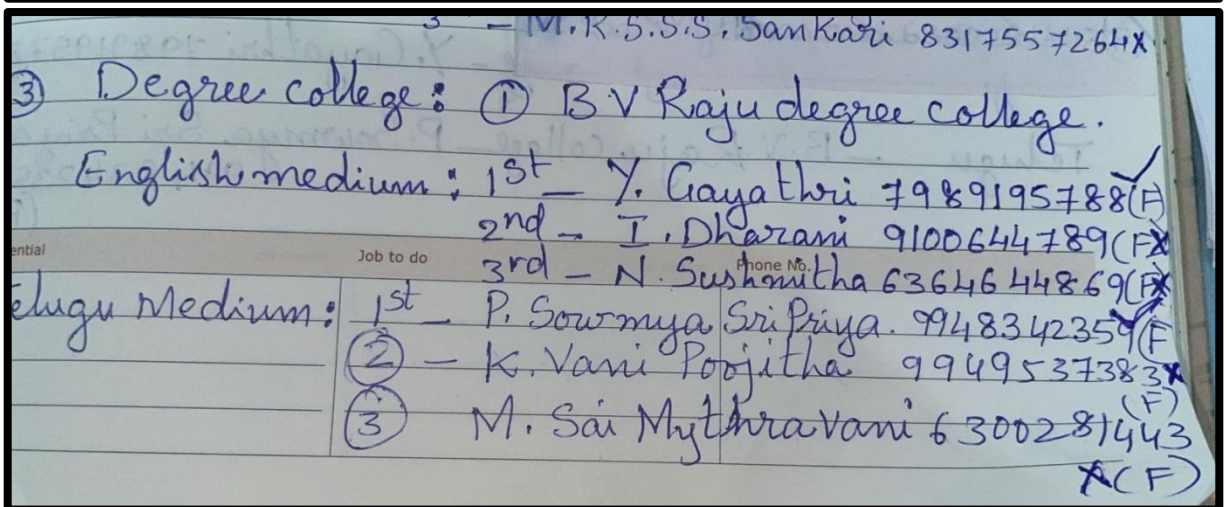 3 - M.K.S.S.S. Sankari 8317557264x
③ Degree college: ① B V Raju degree college.
English medium: 1st - Y. Gayathri 7989195788 ✓(F)
2nd - I. Dharani 9100644789(F)x
ential Job to do Phone No.
3rd - N. Sushmitha 6364644869(F)x
Telugu Medium: 1st - P. Sowmya Sri Priya. 9948342359 ✓(F
② - K. Vani Poojitha 9949537383x
(F)
③ M. Sai Mythravani 6300281443
x(F)